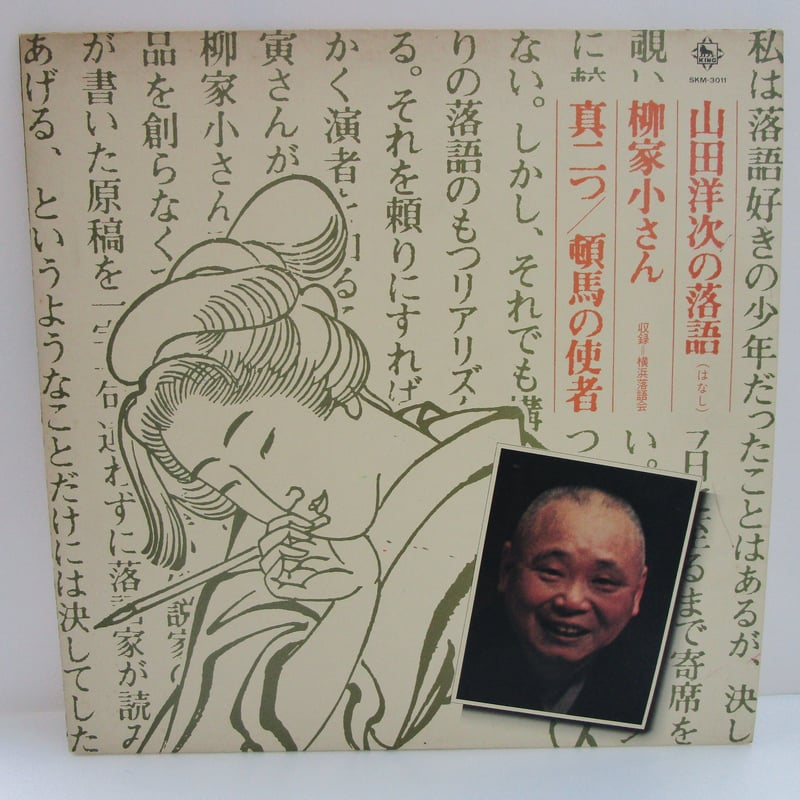 KING
SKM-3011
山田洋次の落語(はなし)
柳家小さん
収録=横浜落語会
真二つ/頓馬の使者
私は落語好きの少年だったことはあるが、決し
るまで寄席を
覗い
い。
に
つ
ない。しかし、それでも
りの落語のもつリアリズ
る。それを頼りにすれば
かく演者
寅さんが
柳家小さん
品を創らなく
が書いた原稿を一字一句違わずに落語家が読み
あげる、というようなことだけには決してした